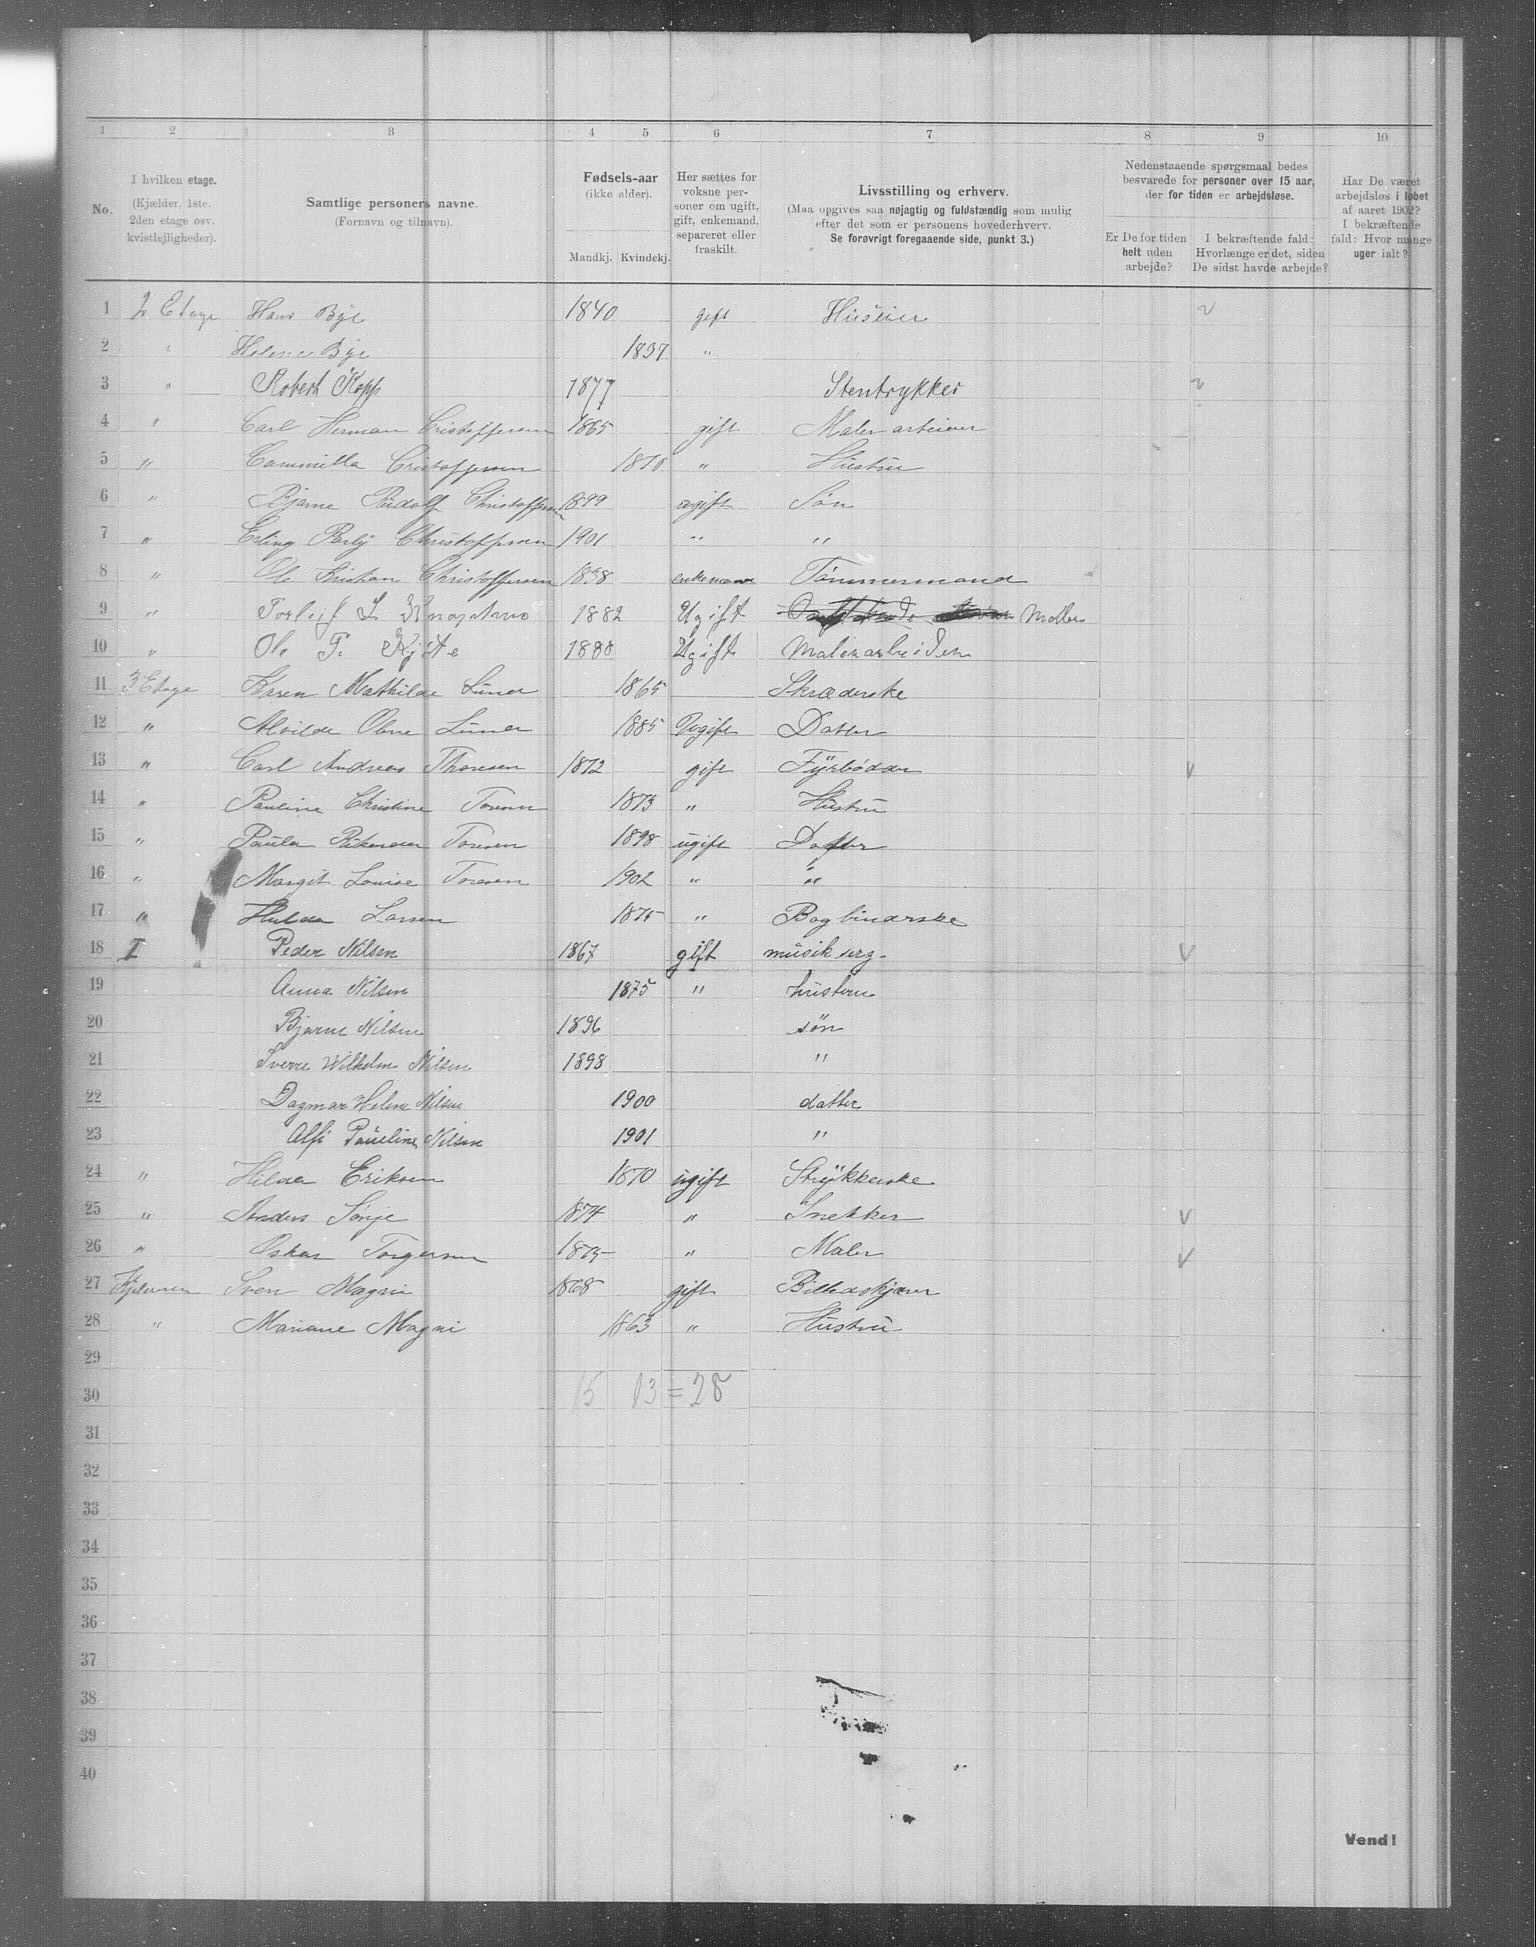 1 2 3 4 5 6 7 8 9 10
No. I hvilken etage. (Kjælder, 1ste, 2den etage osv. kvistlejligheder). Samtlige personers navne. (Fornavn og tilnavn). Fødsels-aar (ikke alder). Mandkj. Kvindekj. Her sættes for voksne personer om ugift, gift, enkemand, separeret eller fraskilt. Livsstilling og erhverv. (Maa opgives saa nøjagtig og fuldstændig som mulig efter det som er personens hovederhverv. Se forøvrigt foregaaende side, punkt 3.) Nedenstaaende spørgsmaal bedes besvarede for personer over 15 aar, der for tiden er arbejdsløse. Er De for tiden helt uden arbejde? I bekræftende fald: Hvorlænge er det, siden De sidst havde arbejde? Har De været arbejdsløs i løbet af aaret 1902? I bekræftende fald: Hvor mange uger ialt?
1 2 Etage Hans Bye 1840 gift Huseier
2 " Helene Bye 1837 "
3 " Robert Kopp 1877 Stentrykker
4 " Carl Herman Cristoffersen 1865 gift Maler arbeider
5 " Cammilla Cristoffersen 1870 " Hustru
6 " Bjarne Rudolf Christoffersen 1899 ugift Søn
7 " Erling Christoffersen 1901 " "
8 " Ole Kristian Christoffersen 1838 enkemand Tømmermand
9 " Torleif L 1882 Ugift Maller
10 " Ole T. 1880 Ugift Malerarbeider
11 3 Etage Karen Mathilde Lund 1865 Skræderske
12 " Alvilde Oline Lund 1885 Ugift Datter
13 " Carl Andreas Thoresen 1872 gift Fyrbødder v
14 " Pauline Christine Toresen 1873 " Hustru
15 " Paula Toresen 1898 ugift Datter
16 " Margit Louise Toresen 1902 " "
17 " Hulda Larsen 1875 " Bogbinderske
18 I Peder Nilsen 1867 gift musik serg. v
19 Anna Nilsen 1875 " hustru
20 Bjarne Nilsen 1896 søn
21 Sverre Wilhelm Nilsen 1898 "
22 Dagmar Helene Nilsen 1900 datter
23 Alfi Pauline Nilsen 1901 "
24 " Hilda Eriksen 1870 ugift Strykkerske
25 " Anders 1874 " Snekker v
26 " Oskar Torgersen 1875 " Maler v
27 Kjelderen Sven Magni 1868 gift Billedskjærer
28 " Mariane Magni 1863 " Hustru
29
30 15 13 = 28
31
32
33
34
35
36
37
38
39
40
Vend!